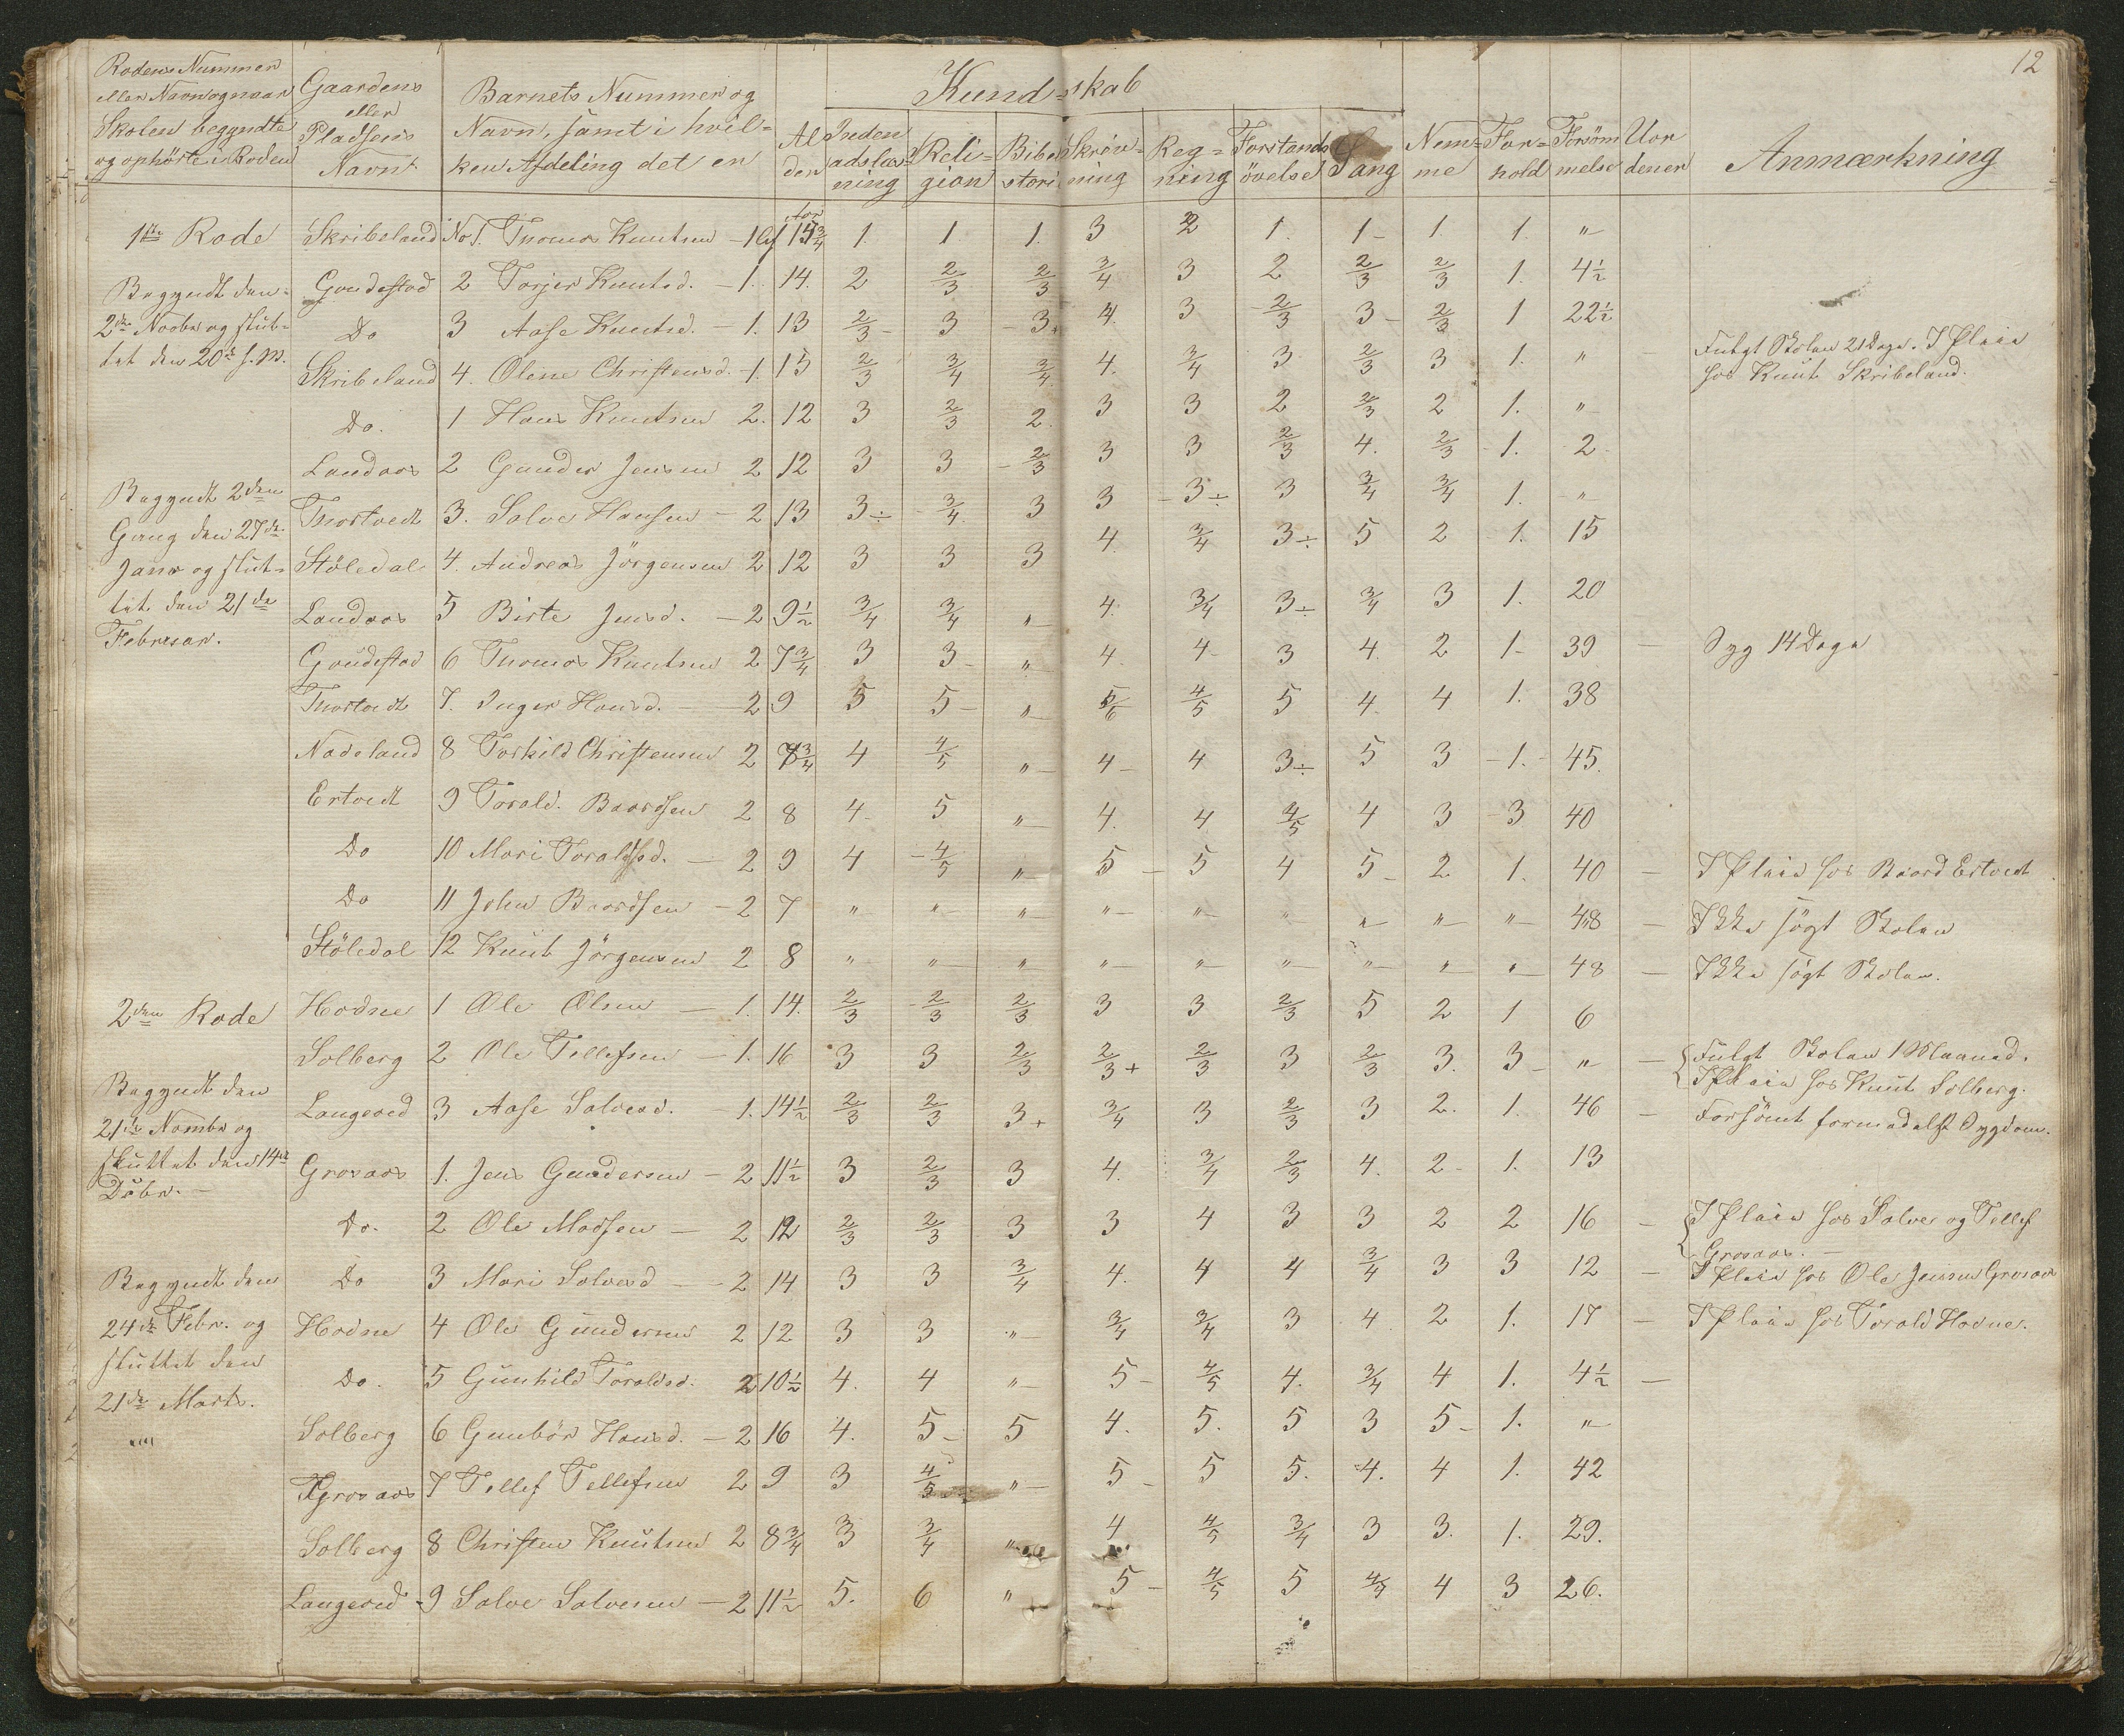 12
Rodens Nummer eller Navn og naar Skolen begyndte og ophörte i Roden
Gaardens eller Pladsens Navn
Barnets Nummer og Navn, samt i hvilken Afdeling det er
Alder
Kundskab
Indenadslæsning
Religion
Bibelhistorie
Skrivning
Regning
Forstandsövelse
Sang
Nemme
Forhold
Forsömmelse
Uordener
Anmærkning
1ste Rode Skribeland No 1. Thomas Knutsen - 1 Cl 15 3/4 1. 1. 1. 3 2 1. 1 1 1. "
Begyndt den Goudestad 2 Torjer Knutsd. - 1. 14. 2 2/3 2/3 3/4 3 2 2/3 2/3 1. 4 1/2
2den Novbr og slut- Do 3 Aase Knutsd. - 1. 13 2/3 3 3+ 4. 3 2/3 3 2/3 1 22 1/2
tet den 20de s. M. Skribeland 4. Olene Christensd. - 1. 15 2/3 3/4 3/4 4. 3/4 3 2/3 3 1. " - Fulgt Skolen 21 Dage. I Pleie
hos Knut Skribeland.
Do. 1 Hans Knutsen 2. 12 3 2/3 2. 3 3 2 2/3 2 1. "
Landaas 2 Gunder Jensen 2 12 3 3 2/3 3 3 2/3 4. 2/3 1. 2
Begyndt 2den Thostvedt 3. Salve Hansen - 2 13 3÷ 3/4 3 3 3÷ 3 3/4 3/4 1. "
Gang den 27de Stöledal 4. Andreas Jörgensen 2 12 3 3 3 4. 3/4 3÷ 5 2 1. 15
Janr og slut- Landaas 5 Birte Jensd. - 2 9 1/2 3/4 3/4 " 4. 3/4 3÷ 3/4 3 1. 20
tet den 21de
Februar. Goudestad 6 Thomas Knutsen 2 7 3/4 3 3 " 4. 4 3 4. 2 1 39 - Syg 14 Dage
Thostvedt 7. Inger Hansd. - 2 9 5 5 " 5/6 4/5 5 4 4 1. 38
Nadeland 8 Torkild Christensen 2 8 3/4 4 4/5 " 4 4 3÷ 5 3 1. 45.
Ertvedt 9 Torald. Baardsen 2 8 4 5 " 4. 4 4/5 4 3 3 40
Do 10 Mari Toraldsd. - 2 9 4 4/5 " 5 5 4 5 2 1. 40 - I Pleie hos Baard Ertvedt
Do 11 John Baardsen - 2 7 " " " " " " " " " 48 - Ikke sögt Skolen
Stöledal 12 Knut Jörgensen 2 8 " " " " " " " " " 48 - Ikke sögt Skolen.
2den Rode Hodne 1 Ole Olsen - 1. 14. 2/3 2/3 2/3 3 3 2/3 5 2 1 6
Solberg 2 Ole Tellefsen - 1. 16 3 3 2/3 2/3+ 2/3 3 2/3 3. 3 " - Fulgt Skolen 1 Maaned.
I Pleie hos Knut Solberg.
Begyndt den Langeved 3 Aase Salvesd. - 1. 14 1/2 2/3 2/3 3+ 3/4 3 2/3 3 2. 1. 46 - Forsömt formedelst Sygdom.
21de Novmbr og
sluttet den 14de Grosaas 1. Jens Gundersen - 2 11 1/2 3 2/3 3 4. 3/4 2/3 4. 2 1. 13
Dsbr. - Do. 2 Ole Madsen - 2 12 2/3 2/3 3 3 4 3 3 2 2 16 - I Pleie hos Salve og Tellef
Grosaas. -
Begyndt den Do 3 Mari Salvesd - 2 14 3 3 3/4 4. 4 4 3/4 3 3 12 - I Pleie hos Ole Jensen Grosaas
24de Febr. og Hodne 4 Ole Gundersen 2 12 3 3 " 3/4 3/4 3 4 2 1. 17 - I Pleie hos Torald Hodne.
sluttet den Do. 5 Gunhild Toraldsd. 2 10 1/2 4. 4 " 5 4/5 4. 3/4 4 1. 4 1/2 -
21de Marts. Solberg 6 Gunbör Hansd. - 2 16 4. 5 5 4. 5. 5 3 5 1. "
Grosaas 7 Tellef Tellefsen 2 9 3 4/5 " 5 5 5. 4. 4 1. 42
Solberg 8 Christen Knutsen 2 8 3/4 3 3/4 " 4 4/5 3/4 3 3. 1. 29.
Langeved 9 Salve Salvesen - 2 11 1/2 5. 6 " 5 4/5 5 4/5 4 3 26.